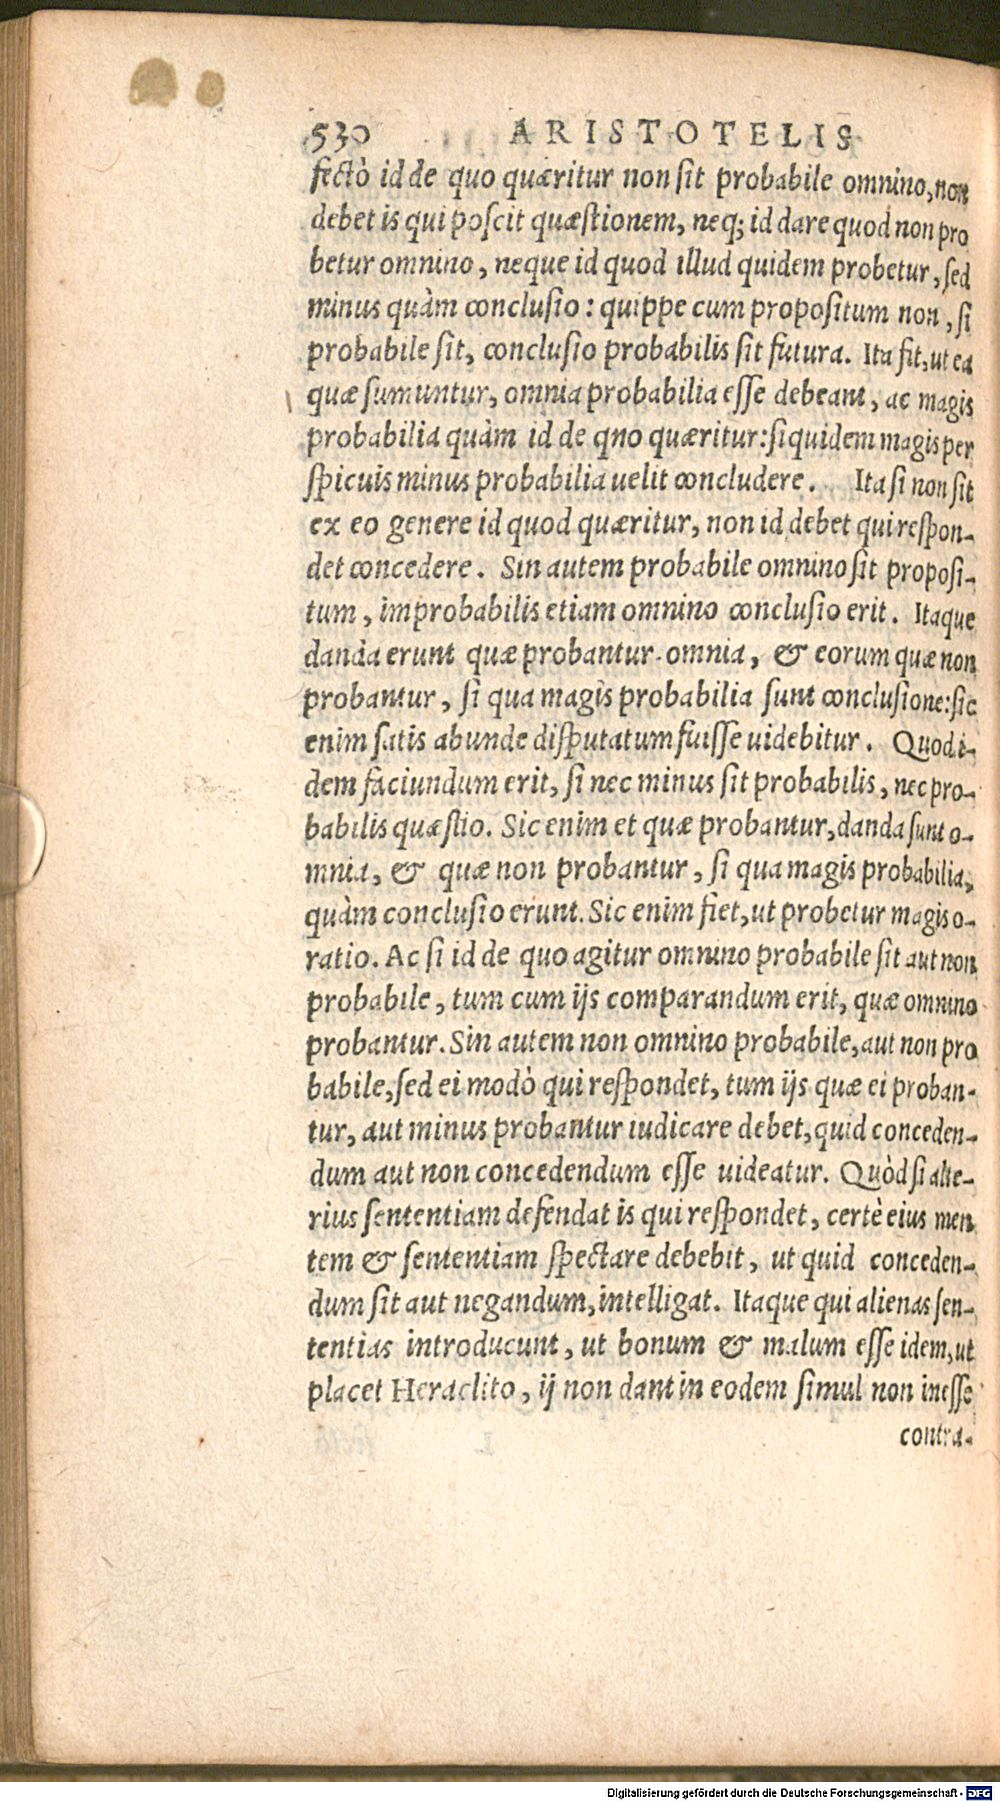 530 ARISTOTELIS
fectò id de quo quæritur non sit probabile omnino, non
debet is qui poscit quæstionem, neq; id dare quod non pro
betur omnino, neque id quod illud quidem probetur, sed
minus quàm conclusio: quippe cum propositum non, si
probabile sit, conclusio probabilis sit futura. Ita fit, ut ea
quæ sumuntur, omnia probabilia esse debeant, ac magis
probabilia quàm id de qno quæritur: siquidem magis per
spicuis minus probabilia uelit concludere. Ita si non sit
ex eo genere id quod quæritur, non id debet qui respon-
det concedere. Sin autem probabile omnino sit proposi-
tum, improbabilis etiam omnino conclusio erit. Itaque
danda erunt quæ probantur omnia, & eorum quæ non
probantur, si qua magis probabilia sunt conclusione: sic
enim satis abunde disputatum fuisse uidebitur. Quod i-
dem faciundum erit, si nec minus sit probabilis, nec pro-
babilis quæstio. Sic enim et quæ probantur, danda sunt o-
mnia, & quæ non probantur, si qua magis probabilia,
quàm conclusio erunt. Sic enim fiet, ut probetur magis o-
ratio. Ac si id de quo agitur omnino probabile sit aut non
probabile, tum cum ijs comparandum erit, quæ omnino
probantur. Sin autem non omnino probabile, aut non pro
babile, sed ei modò qui respondet, tum ijs quæ ei proban-
tur, aut minus probantur iudicare debet, quid conceden-
dum aut non concedendum esse uideatur. Quòd si alte-
rius sententiam defendat is qui respondet, certè eius men
tem & sententiam spectare debebit, ut quid conceden-
dum sit aut negandum, intelligat. Itaque qui alienas sen-
tentias introducunt, ut bonum & malum esse idem, ut
placet Heraclito, ij non dant in eodem simul non inesse
contra-
Digitalisierung gefördert durch die Deutsche Forschungsgemeinschaft - DFG